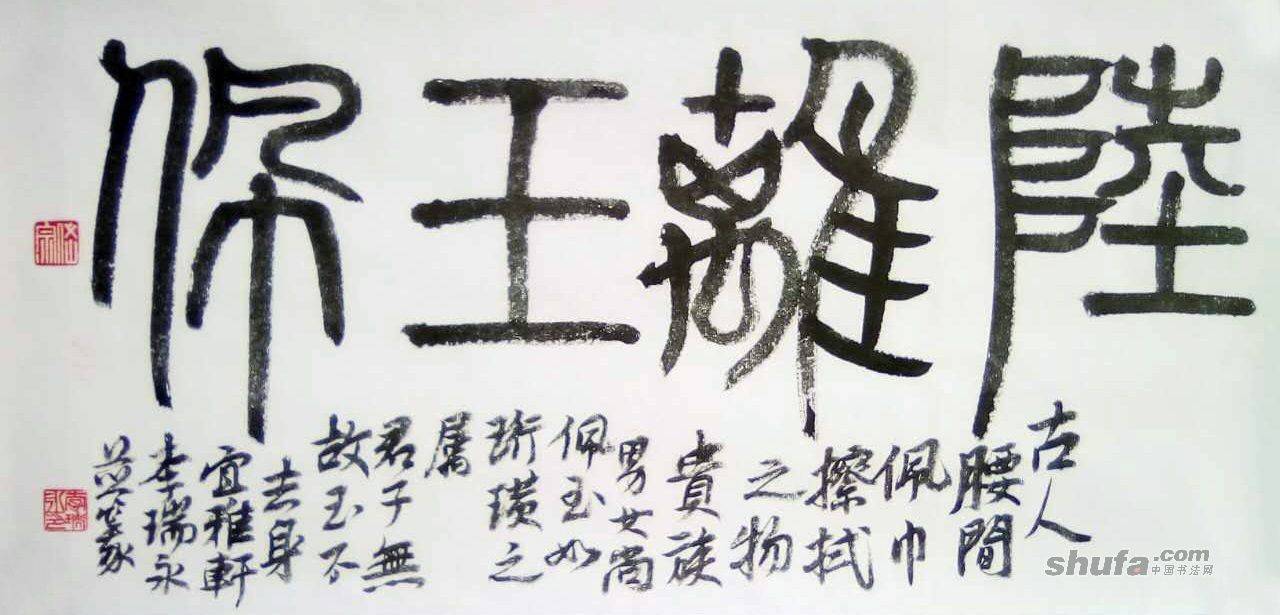 陸離玉佩
古人
腰間
佩巾
擦拭
之物
貴族
男女尚
佩玉如
珩璜之
屬
君子無
故玉不
去身
宜雅軒
李瑞永
shufa.com
中国书法网